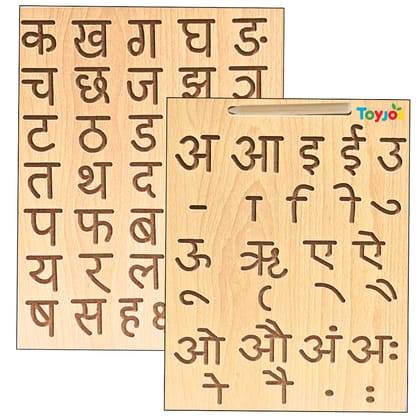 क ख ग घ ङ
च छ ज झ ञ
ट ठ ड
त थ द
प फ ब
य र ल
ष स ह
Toyjoy
अ आ इ ई उ
ऊ ऋ ए ऐ
ओ औ अं अः